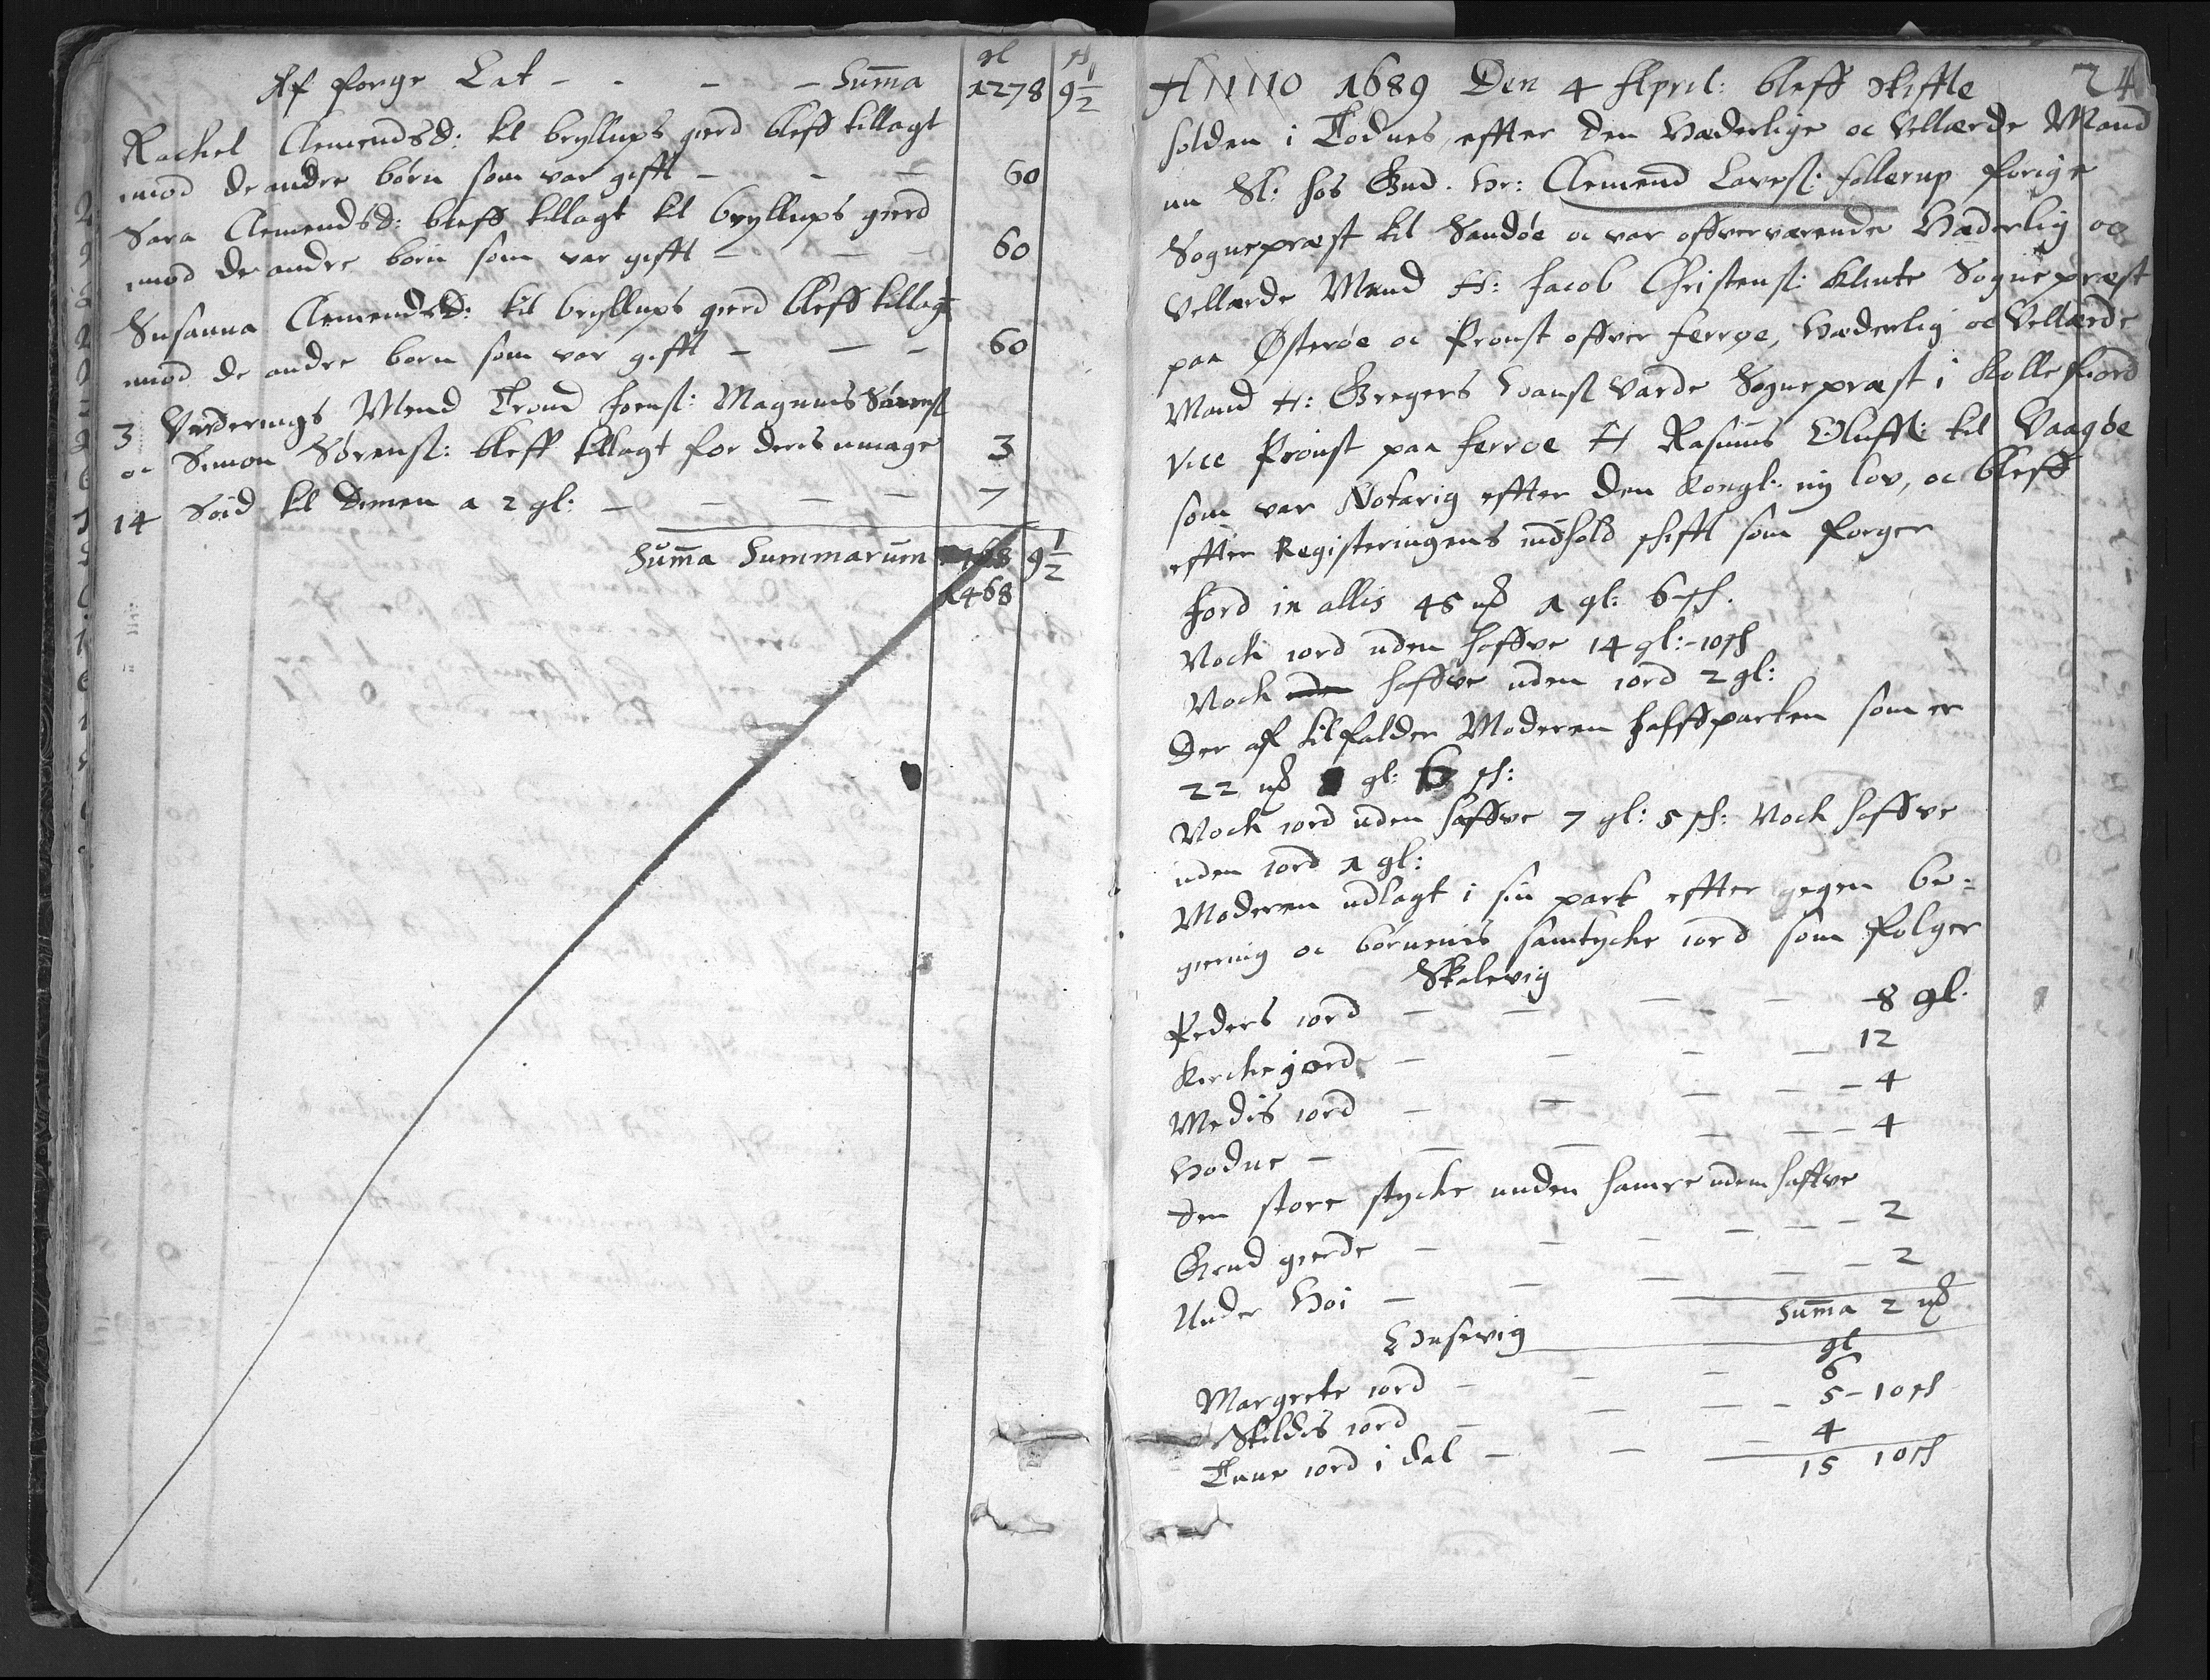 gl s
Af forge Lat - - - - Summa 1278 9½
Rachel Clemendsd: til bryllups gierd bleff tillagt
imod de andre börn som var gifft - - - 60
Sara Clemendsd: bleff tillagt til bryllups gierd
imod de andre börn som var gifft - - - 60
Susanna Clemendsd: til bryllups gierd bleff tillagt
imod de andre born som var gifft - - - 60
3 Vurderings Mend Trond Joensl: Magnus Sörensl
oc Simon Sörensl: bleff tillagt for deris umage 3
14 Söid til Dimen a 2 gl: - - - - 7
Summa Summarum 9½
1468
ANNO 1689 Den 4 April: bleff skiffte 24
holden i Todnes effter den Hæderlige oc Vellærde Mand
nu Sl: hos Gud. Hr: Clemend Lavesl: follerup forige
Sognepræst til Sandöe oc var offververende Hæderlig oc
Vellærde Mand H: Jacob Christensl: Klinte Sognepræst
paa Østeröe oc Proust offver ferröe, Hæderlig oc Vellærde
Mand H: Gregers Hansl Varde Sognepræst i Kollefiord
Vice Proust paa ferröe H Rasmus Oluffl: til Vaagöe
som var Notarig effter den Kongl: ny lov, oc bleff
effter Registeringens indhold schifft som forger
Jord in allis 45 m͠k 1 gl: 6 sh.
Noch iord uden haffve 14 gl:-10 sh
Noch uden haffve uden iord 2 gl:
Der af tilfalder Moderen halffparten som er
22 m͠k gl: 6 sh:
Noch iord uden haffve 7 gl: 5 sh: Noch haffve
uden iord 1 gl:
Moderen udlagt i sin part effter gegen be=
giering oc börnenis samtyche iord som folger
Skalevig
Peders iord - - - - 8 gl.
Kirchegierde - - - - 12
Medis iord - - - - 4
Hodne - - - - 4
den store styche unden hamre uden haffve
Grud gierde - - - - 2
Under Hoi - - - - 2
Summa 2 m͠k
Husevig
gl
Margrete iord - - - 6
Skildis iord - - - 5-10 sh
Tune iord i dal - - - 4
15 10 sh